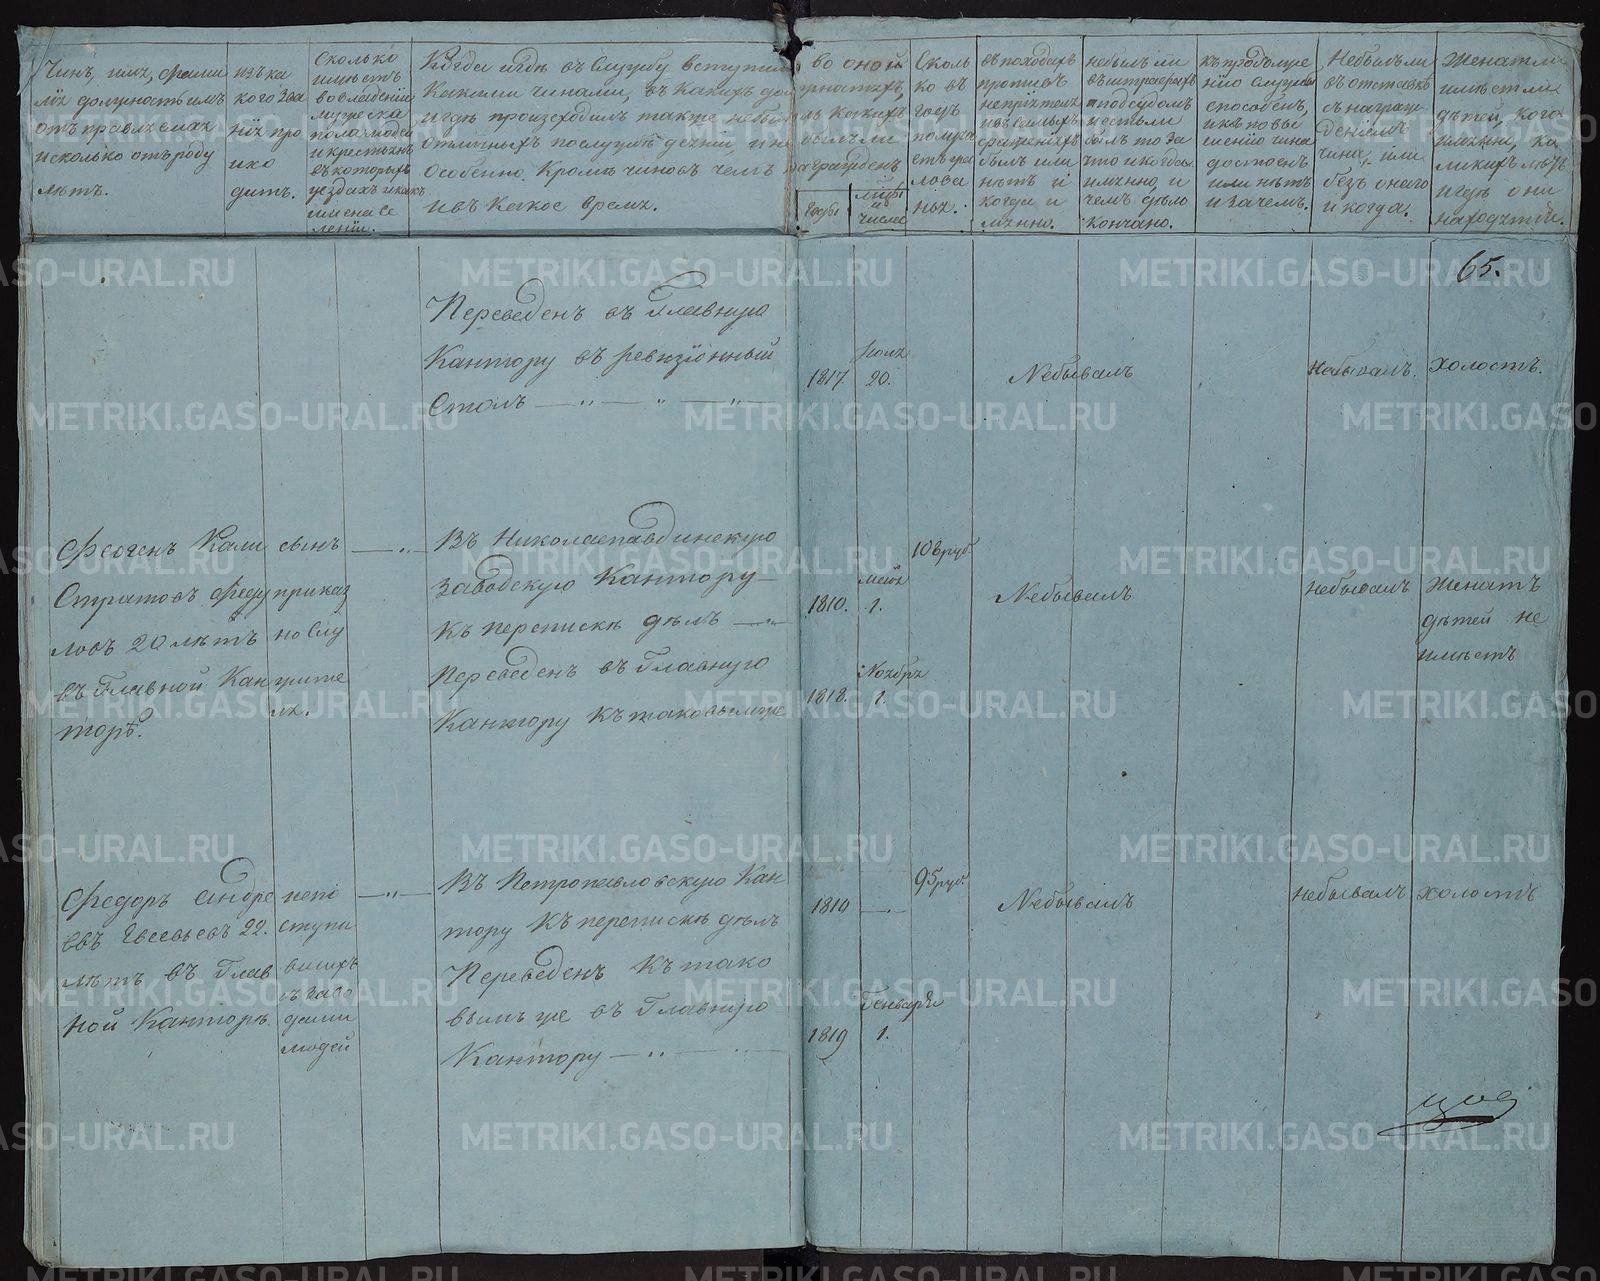 Чинъ, имя, фами
лія должность имъ
отправляемая
и сколько отъ роду
лѣтъ.
изъ ка
кого зва
нія про
ихо
дитъ.
Сколько
имѣетъ
во владеніи
мужеска
пола людей
и крестьянъ
въ которыхъ
уездахъ и какъ
имена се
леніи.
Когда и гдѣ въ Службу вступилъ
Какими чинами, въ какихъ дол
и гдѣ произсходилъ также небыло
отличныхъ по службѣ деяній, и не
Особенно Кроме чиновъ чемъ
и въ какое время.
во оной
жностяхъ
ль какихъ
былъ ли
награжденъ
Годы
м-цы
и
числа
Сколь
ко въ
годъ
получа
етъ жа
лова
нья.
въ походахъ
противъ
непріятеля
и въ самыхъ
сраженіяхъ
былъ или
нѣтъ и
когда и
мянно.
небылъ ли
въ штрафахъ
и подсудомъ
и естьли
былъ то за
что и когда
имянно, и
чемъ дѣло
Кончано.
къ продолже
нію службы
способенъ,
и къ повы
шенію чина
достоенъ
или нѣтъ
и за чемъ.
Небылъ ли
въ отставкѣ
съ награж
деніемъ
чина, или
безъ онаго
и когда.
Женатъ ли
имѣетъ ли
дѣтей, кого
имянно, ка
кихъ лѣтъ
и гдѣ они
находятся.
65.
Переведенъ въ Главную
Кантору въ ревизіонный
Столъ — „ — „ — „
1817.
Іюля
20.
Небывалъ
Небывалъ.
холостъ.
Феогенъ Кали
Стратовъ Феду
ловъ 20 лѣтъ
въ Главной Кан
торѣ.
сынъ
приказ
но слу
жите
ля.
— „ —
Въ Николаепавдинскую
Заводскую Кантору —
Къ перепискѣ дѣлъ — „
Переведенъ въ Главную
Кантору къ таковымъ же
1810.
Маія
1.
1818.
Ноября
1.
108 руб.
Небывалъ
Небывалъ
Женатъ
дѣтей не
имѣетъ
Федоръ Андре
евъ Евсевьевъ 22.
лѣтъ въ Глав
ной Канторѣ.
непо
ступи
вшихъ
съ заво
дами
людей
— „ —
Въ Петропавловскую Кан
тору Къ перепискѣ дѣлъ
Переведенъ Къ тако
вымъ же въ Главную
Кантору — „ —
1810
— „ —
1819
Генваря
1.
95 руб.
Небывалъ
Небывалъ
холостъ
METRIKI.GASO-URAL.RU